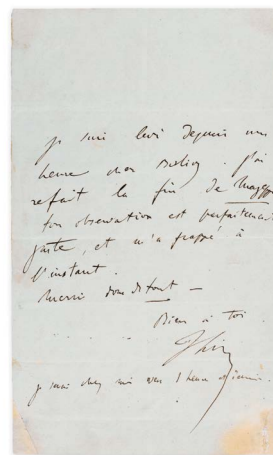 je suis levé depuis une
heure cher Berlioz. J'ai
refait la fin de Mazeppa
ton observation est parfaitement
juste, et m'a frappé à
l'instant.
Merci donc du tout —
Bien à toi
je serai chez moi vers 1 heure